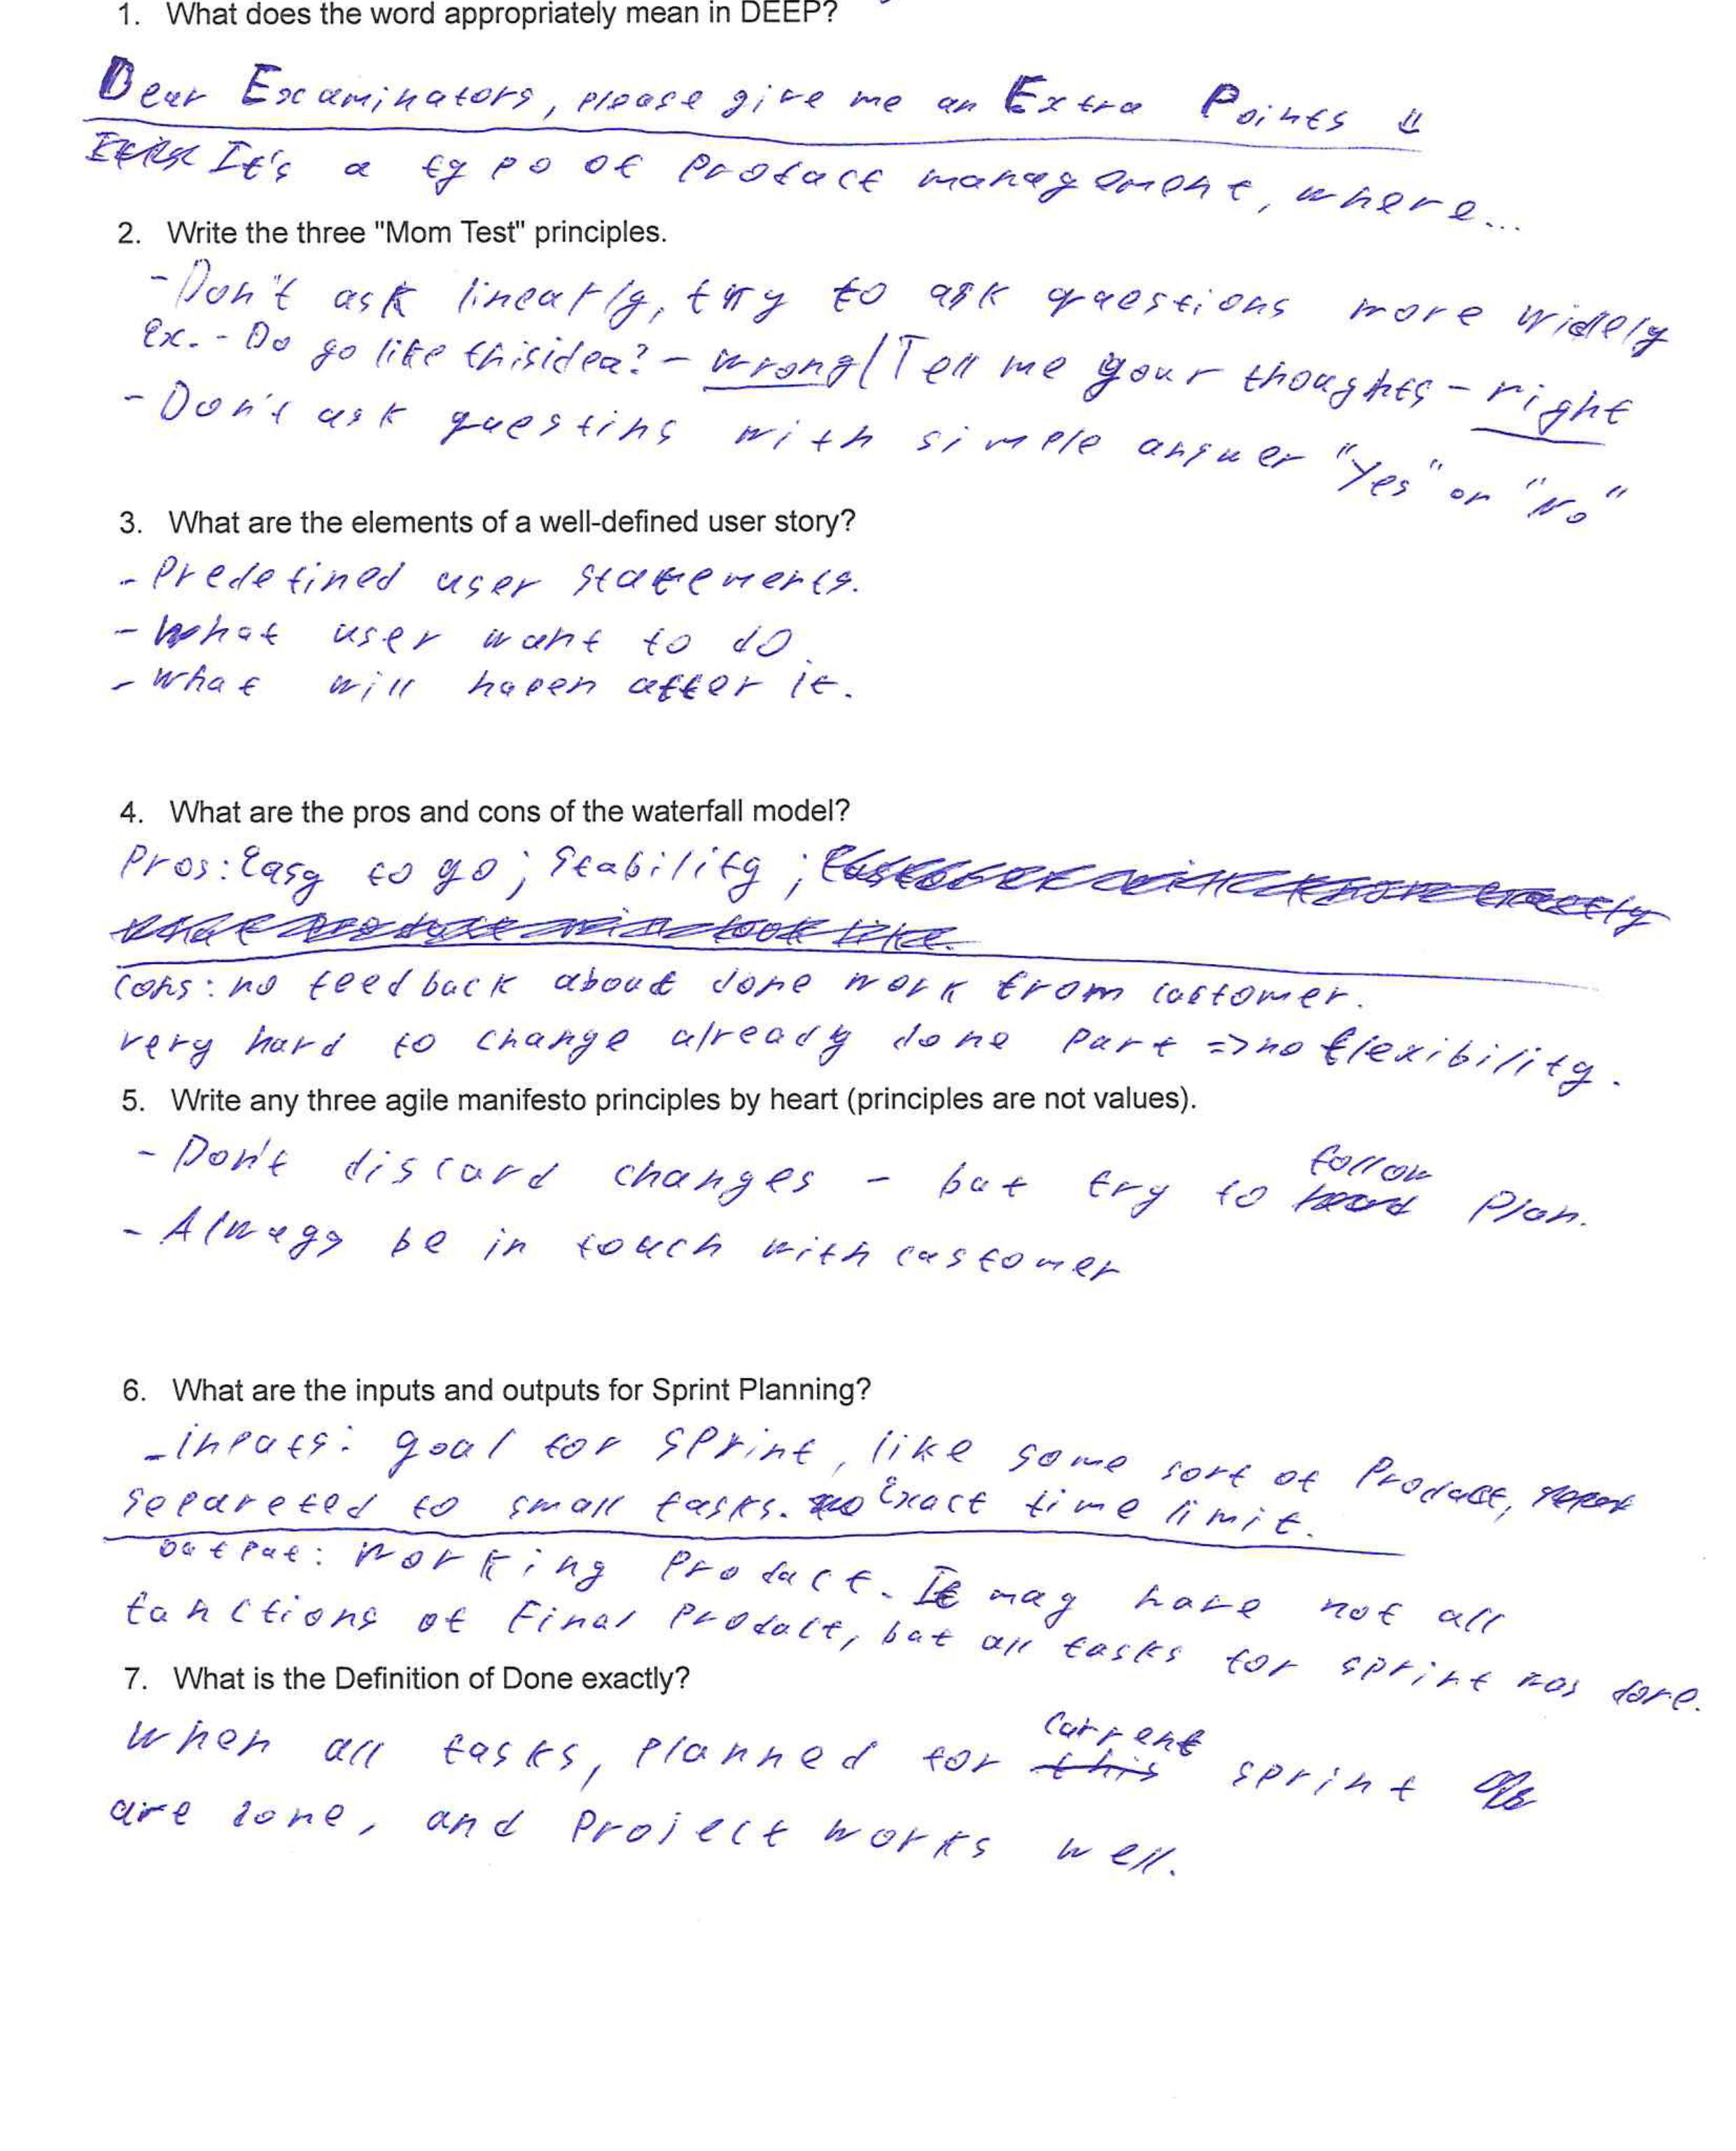 1. What does the word appropriately mean in DEEP?
Dear Excaminators, please give me an Extra Points
It's a type of Product management, where...
2. Write the three "Mom Test" principles.
- Don't ask linearly, try to ask questions more widely
Ex. - Do yo like this idea? - wrong/Tell me your thoughts - right
- Don't ask questins with simple answer "Yes" or "No"
3. What are the elements of a well-defined user story?
- Predefined user statements.
- What user want to do.
- What will hapen after it.
4. What are the pros and cons of the waterfall model?
Pros: Easy to go; Stability;
Cons: no feedback about done work from customer.
very hard to change already done part => no flexibility.
5. Write any three agile manifesto principles by heart (principles are not values).
- Don't discard changes - but try to follow Plan.
- Always be in touch with customer
6. What are the inputs and outputs for Sprint Planning?
- inputs: goal for sprint, like some sort of Product,
separeted to small tasks. Exact time limit.
output: Working Product. It may have not all
functions of Final Product, but all tasks for sprint was done.
7. What is the Definition of Done exactly?
When all tasks, planned for current sprint
are done, and Project works well.